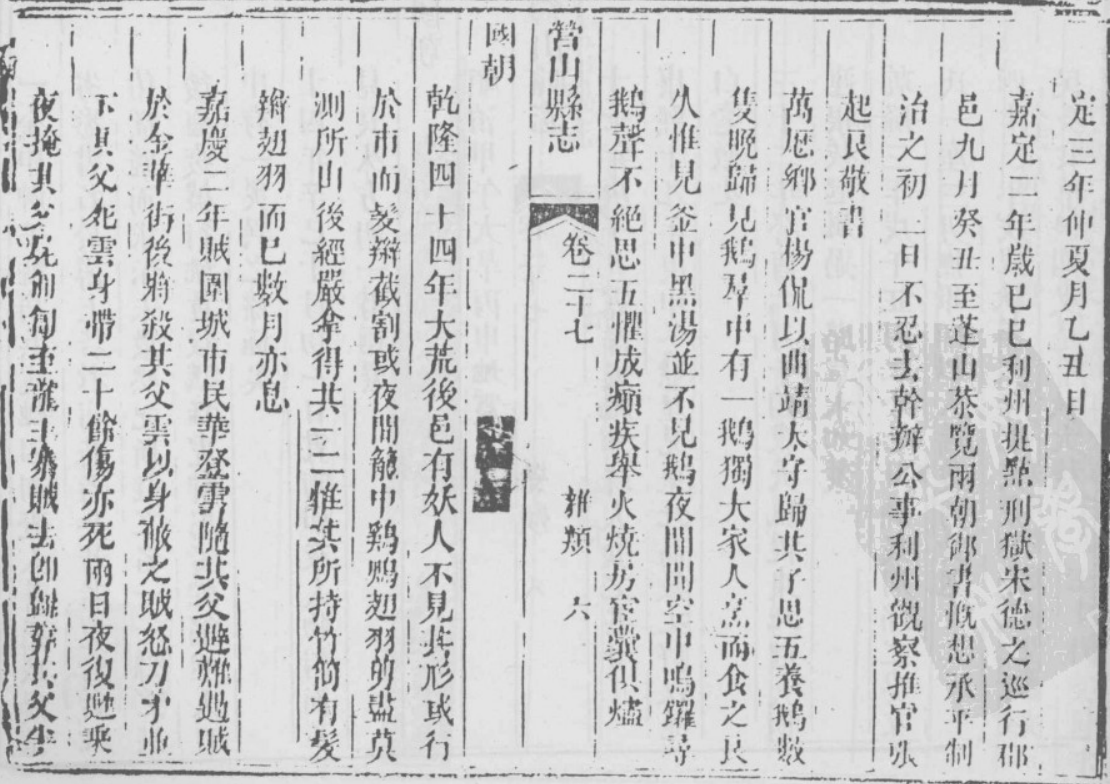 定三年仲夏月乙丑日
嘉定二年歲己巳利州提點刑獄宋德之巡行郡
邑九月癸丑至蓬山恭覽兩朝御書慨想承平制
治之初一日不忍去幹辦公事利州觀察推官張
起艮敬書
萬厯鄉官楊侃以曲靖大守歸其子思五養鵝數
隻晚歸見鵝羣中有一鵝獨大家人烹而食之良
久惟見釜中黑湯並不見鵝夜間聞空中嗚鑼尋
鵝聲不絕思五懼成癲疾舉火燒房宦囊俱燼
營山縣志 卷二十七 雜類 六
國朝
乾隆四十四年大荒後邑有妖人不見其形或行
於市而髮辮截割或夜間籠中鷄鴨翅羽剪盡莫
測所由後經嚴拿得其一二雅其所持竹筒有髮
辮翅羽而已數月亦息
嘉慶二年賊圍城市民華登雲隨其父避難遇賊
於金華街後將殺其父雲以身蔽之賊怒刀矛並
下其父死雲身帶二十餘傷亦死兩日夜復甦乘
夜掩其父死匍匐至灌賊去卽歸葬其父